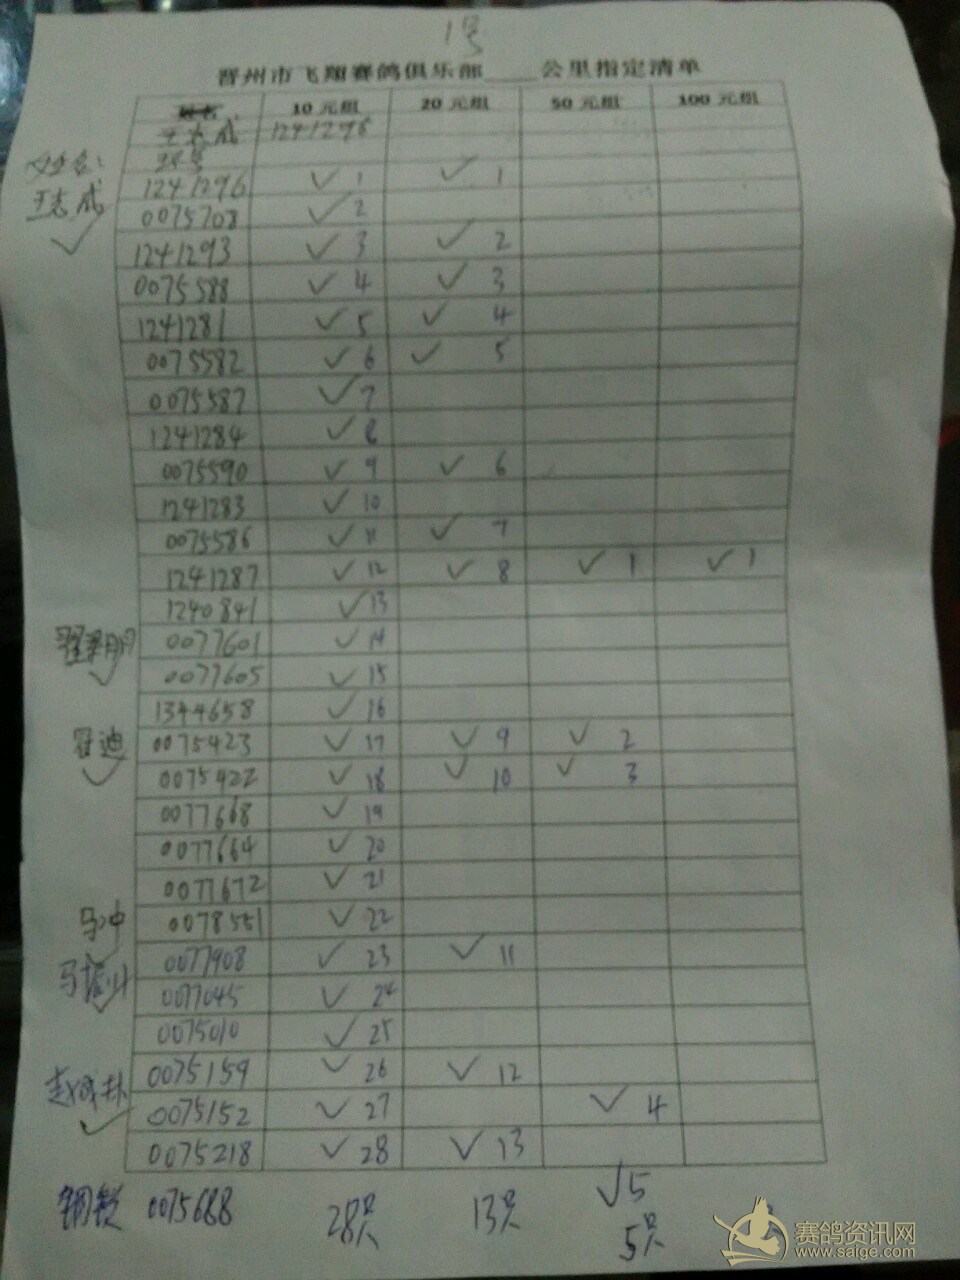 1号
晋州市飞翔赛鸽俱乐部____公里指定清单
姓名 10元组 20元组 50元组 100元组
王志成 1241296
环号
姓名：
王志成
1241296 ✓ 1 ✓ 1
0075708 ✓ 2
1241293 ✓ 3 ✓ 2
0075588 ✓ 4 ✓ 3
1241281 ✓ 5 ✓ 4
0075582 ✓ 6 ✓ 5
0075587 ✓ 7
1241284 ✓ 8
0075590 ✓ 9 ✓ 6
1241283 ✓ 10
0075586 ✓ 11 ✓ 7
1241287 ✓ 12 ✓ 8 ✓ 1 ✓ 1
1240841 ✓ 13
0077601 ✓ 14
0077605 ✓ 15
1344658 ✓ 16
0075423 ✓ 17 ✓ 9 ✓ 2
0075422 ✓ 18 ✓ 10 ✓ 3
0077668 ✓ 19
0077664 ✓ 20
0077672 ✓ 21
马冲 0078551 ✓ 22
0077908 ✓ 23 ✓ 11
0077045 ✓ 24
0075010 ✓ 25
0075159 ✓ 26 ✓ 12
0075152 ✓ 27 ✓ 4
0075218 ✓ 28 ✓ 13
0075688 ✓ 5
28只 13只 5只
赛鸽资讯网
www.saige.com